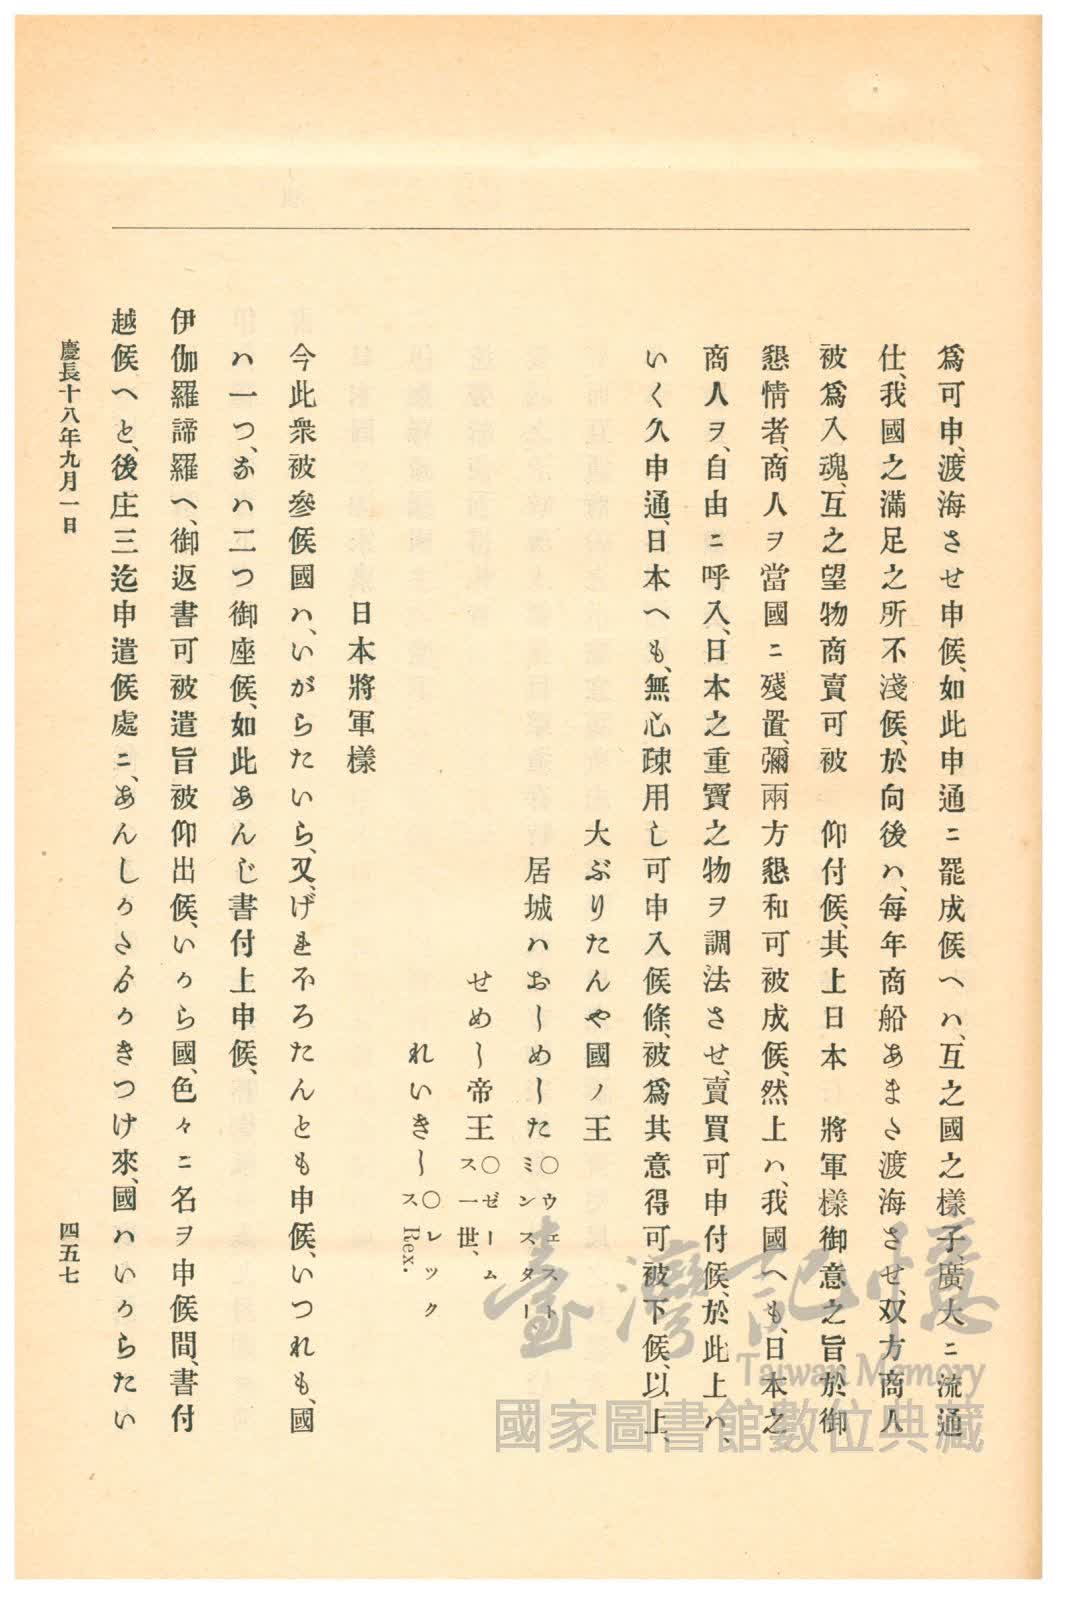 爲可申、渡海させ申候、如此申通ニ罷成候ヘハ、互之國之樣子、廣大ニ流通
仕、我國之滿足之所不淺候、於向後ハ、每年商船あまた渡海させ、双方商人
被爲入魂、互之望物商賣可被　仰付候、其上日本　將軍樣御意之旨、於御
懇情者、商人ヲ當國ニ殘置、彌兩方懇和可被成候、然上ハ、我國ヘも、日本之
商人ヲ、自由ニ呼入、日本之重寶之物ヲ調法させ、賣買可申付候、於此上ハ、
いく久申通、日本ヘも、無心疎用し可申入候條、被爲其意得可被下候、以上、
大ぶりたんや國ノ王
居城ハおしめした○ウェストミンスター、
せめし帝王○ゼームス一世、
れいきし○レックス Rex.
日本將軍樣
今此衆被參候國ハ、いがらたいら、又、げれホろたんとも申候、いつれも、國
ハ一つ、なハ二つ御座候、如此あんじ書付上申候、
伊伽羅諦羅ヘ、御返書可被遣旨被仰出候、いから國、色々ニ名ヲ申候間、書付
越候ヘと、後庄三迄申遣候處ニ、あんしかたゟかきつけ來、國ハいからたい
慶長十八年九月一日
四五七
臺灣記憶
Taiwan Memory
國家圖書館數位典藏